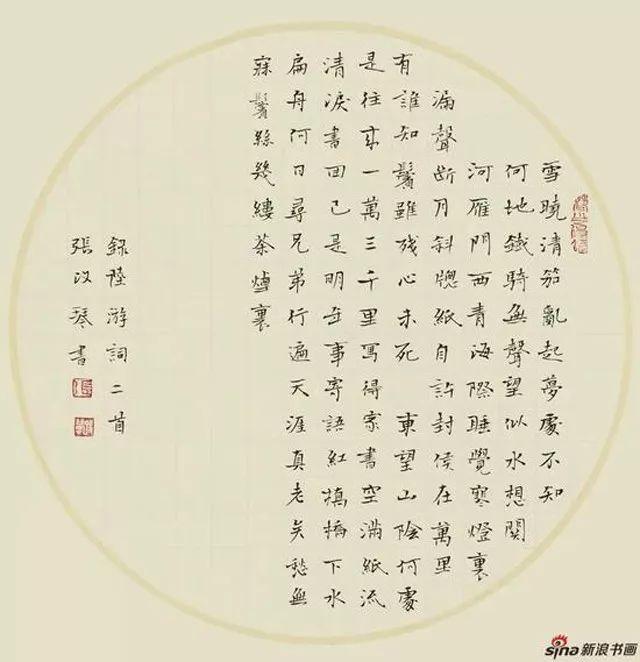 雪曉清笳亂起夢處不知
何地鐵騎無聲望似水想關
河雁門西青海際睡覺寒燈裏
漏聲断月斜牕紙自許封侯在萬里
有誰知鬢雖殘心未死 東望山陰何處
是往来一萬三千里寫得家書空滿紙流
清淚書回已是明年事寄語紅橋下水
扁舟何日尋兄弟行遍天涯真老矣愁無
寐鬢絲幾縷茶煙裏
錄陸游詞二首
張改琴書
sina新浪书画